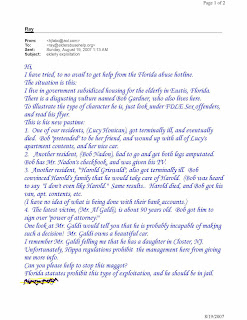 Page 1 of 2
Ray
From:
To:
Sent: Sunday, August 19, 2007 1:10 AM
Subject: elderly exploitation
Hi,
I have tried, to no avail to get help from the Florida abuse hotline.
The situation is this:
I live in government subsidized housing for the elderly in Eustis, Florida.
There is a disgusting vulture named Bob Gardner, who also lives here.
To illustrate the type of character he is, just look under FDLE Sex offenders,
and read his flyer.
This is his new pastime:
1. One of our residents, (Lucy Houtcan), got terminally ill, and eventually
died. Bob "pretended" to be her friend, and wound up with all of Lucy's
apartment contents, and her nice car.
2. Another resident, (Bob Naden), had to go and get both legs amputated.
Bob has Mr. Naden's checkbook, and was given his TV!
3. Another resident, "Harold Griswald", also got terminally ill. Bob
convinced Harold's family that he would take care of Harold. (Bob was heard
to say "I don't even like Harold." Same results. Harold died, and Bob got his
van, apt. contents, etc.
(I have no idea of what is being done with their bank accounts.)
4. The latest victim, (Mr. Al Galdi) is about 90 years old. Bob got him to
sign over "power of attorney!"
One look at Mr. Galdi would tell you that he is probably incapable of making
such a decision! Mr. Galdi owns a beautiful car.
I remember Mr. Galdi telling me that he has a daughter in Closter, NJ.
Unfortunately, Hippa regulations prohibit the management here from giving
me more info.
Can you please help to stop this maggot?
Florida statutes prohibit this type of exploitation, and he should be in jail.
8/19/2007